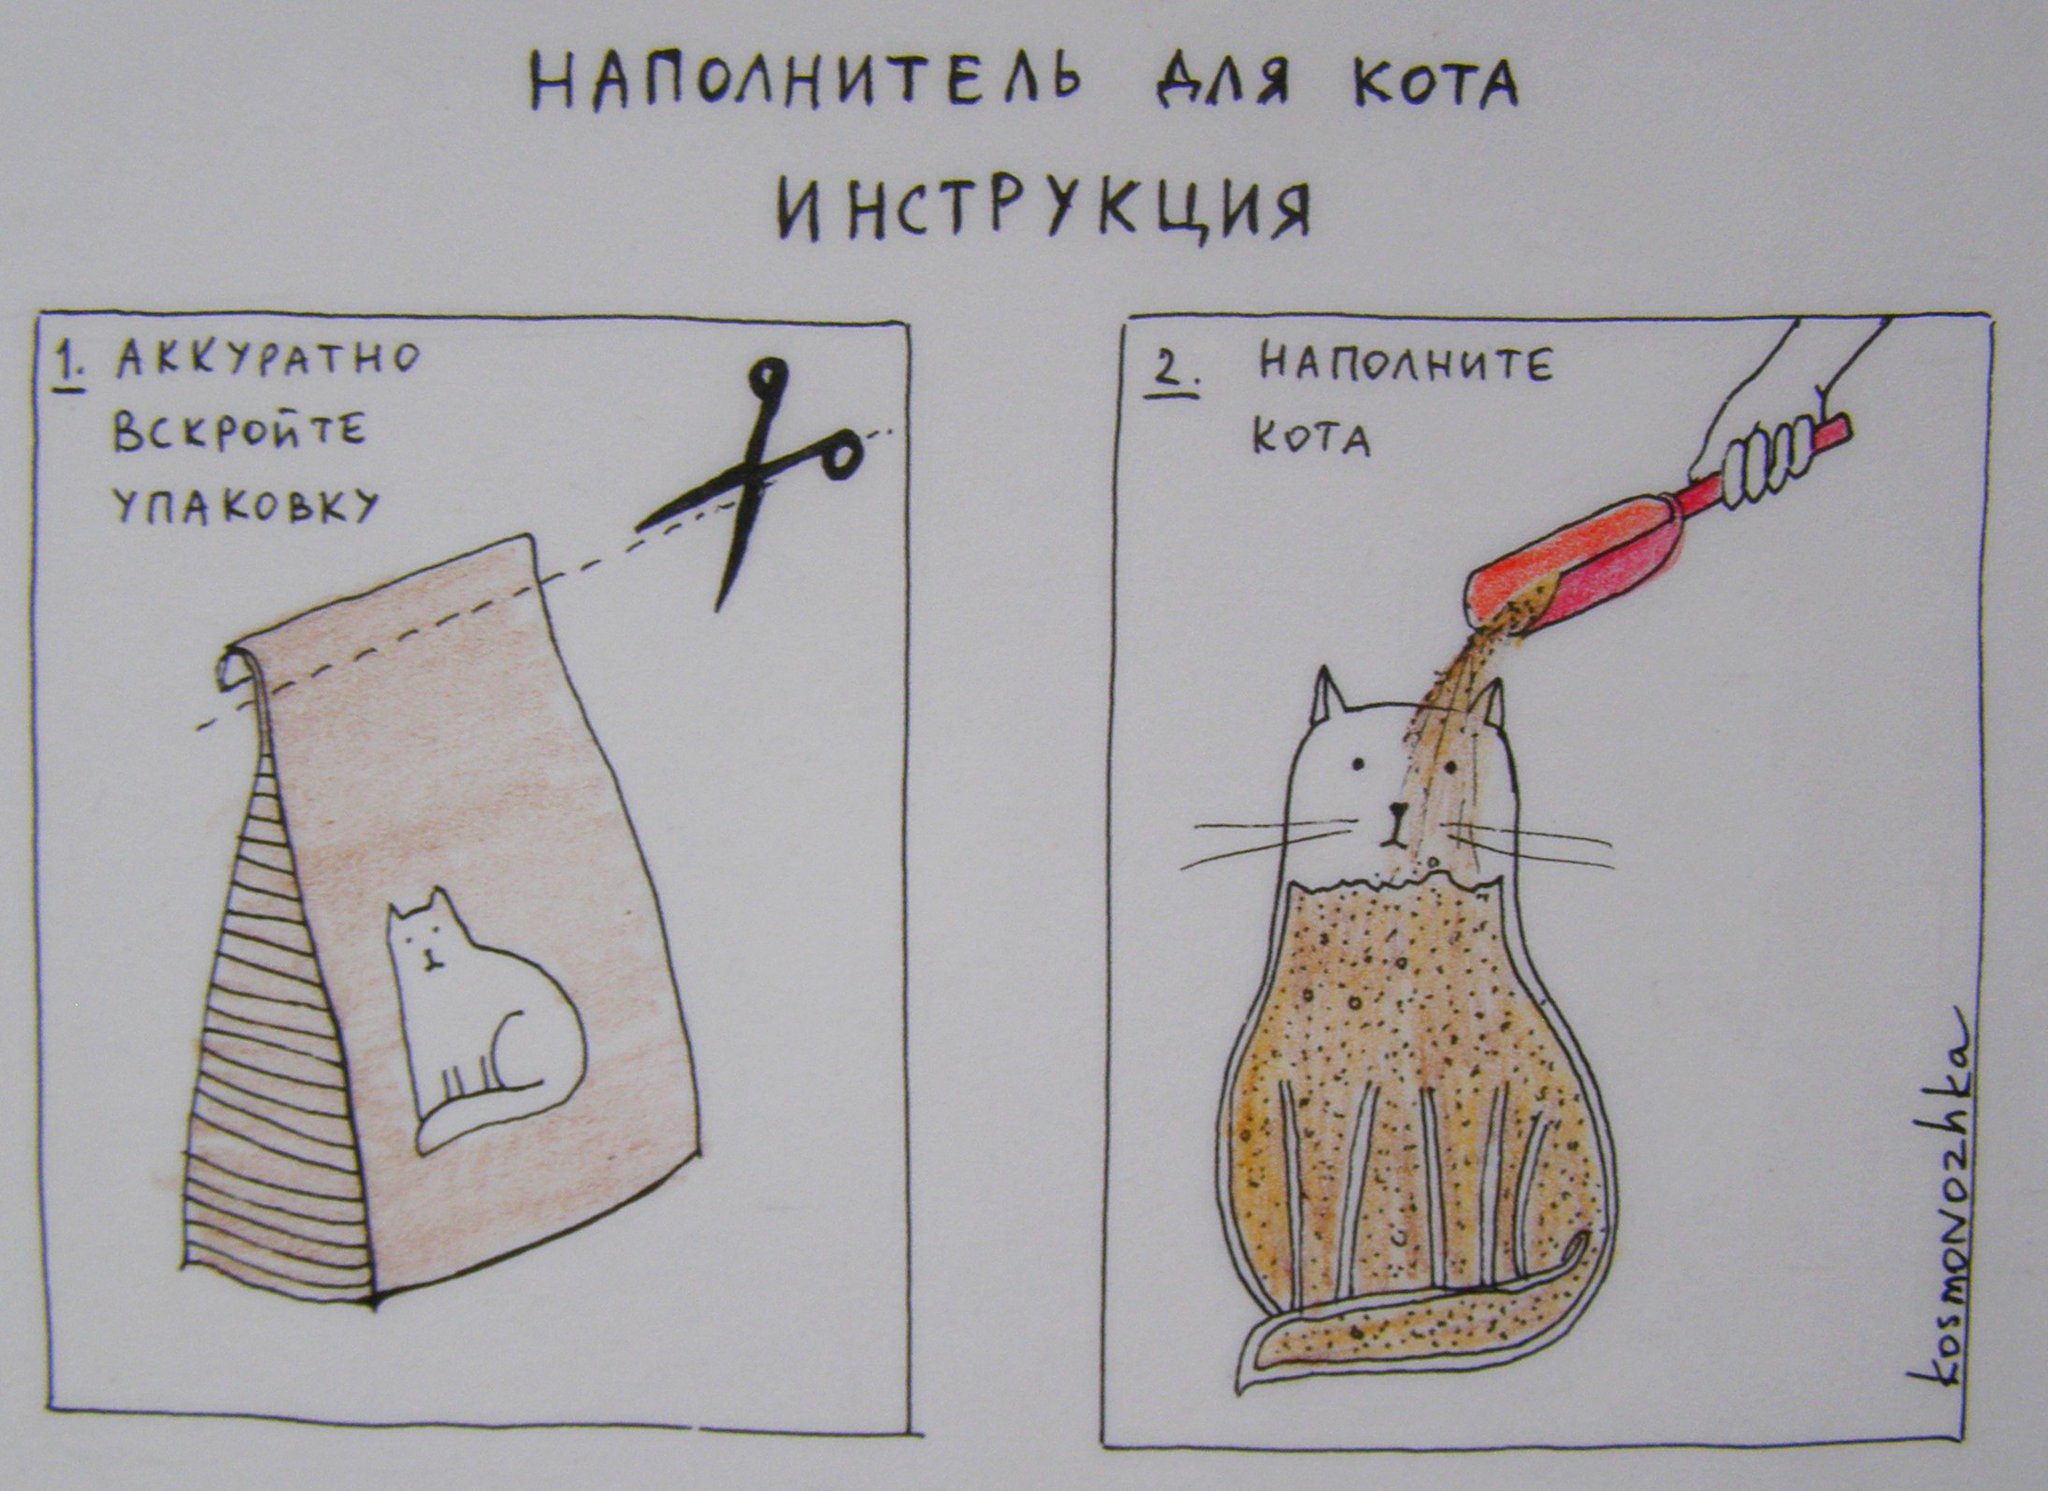 НАПОЛНИТЕЛЬ ДЛЯ КОТА
ИНСТРУКЦИЯ
1. АККУРАТНО
ВСКРОЙТЕ
УПАКОВКУ
2. НАПОЛНИТЕ
КОТА
kosmonozhka